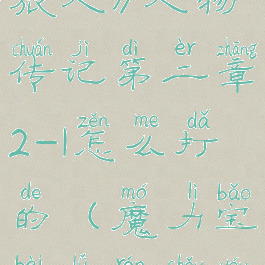 人 人 物
chuán jì dì èr zhāng
传记第二章
zěn me dǎ
2-1怎么打
de mó lì bǎo
的（魔力宝